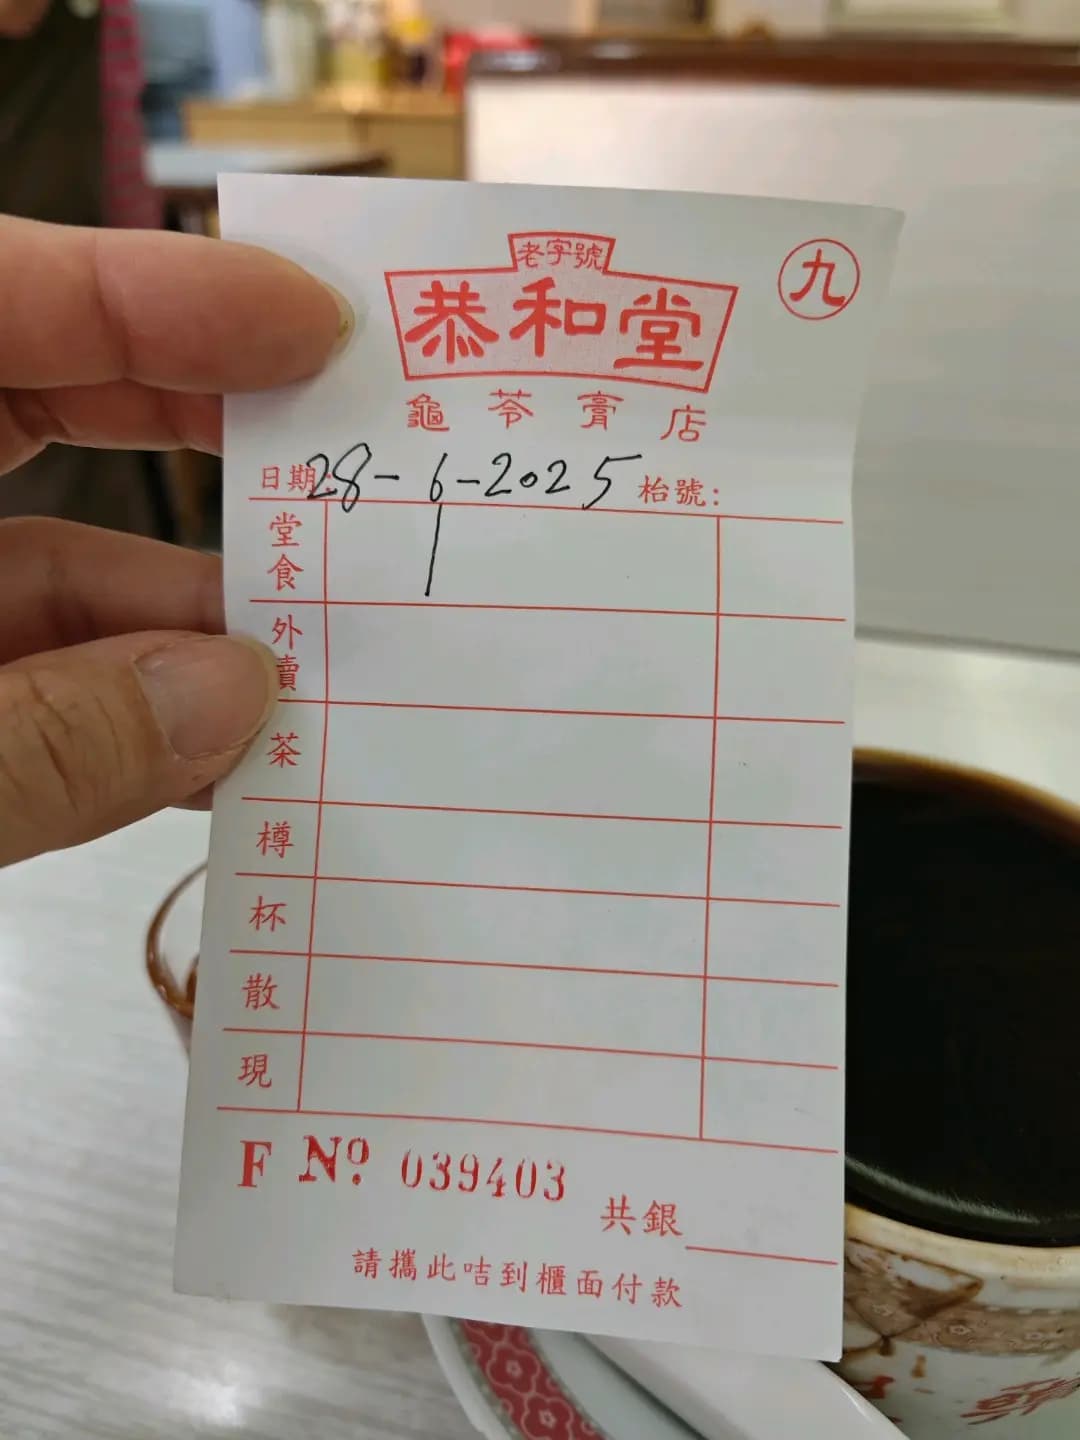 老字號
恭和堂
九
龜苓膏店
日期: 28-6-2025 枱號:
堂食 1
外賣
茶
樽
杯
散
現
F Nº 039403
共銀
請攜此咭到櫃面付款